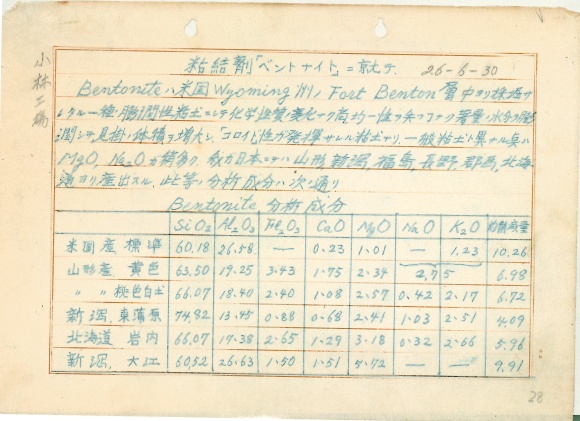 小林工場
粘結剤「ベントナイト」ニ就テ. 26-6-30
Bentonite ハ米国 Wyoming 州ノ Fort Benton 層中ヨリ採掘サ
レタル一種ノ膨潤性粘土ニシテ化学性質ノ変化少ク
潤シテ見掛ノ体積ヲ増大シ「コロイド」性ガ発揮サレル粘土ナリ. 一般粘土ト異ナル点ハ
MgO, Na₂O ガ稍多ク, 我カ日本ニテハ山形 新潟, 福島, 長野, 群馬, 北海
道ヨリ産出スル, 此等ノ分析成分ハ次ノ通リ
Bentonite 分析成分
SiO₂ Al₂O₃ Fe₂O₃ CaO MgO NaO K₂O 灼熱減量
米国産 標準 60.18 26.58 — 0.23 1.01 — 1.23 10.26
山形産 黄色 63.50 19.25 3.43 1.75 2.34 2.75 6.98
〃 〃 桃色白土 66.07 18.40 2.40 1.08 2.57 0.42 2.17 6.72
新潟, 東蒲原 74.82 13.45 0.88 0.68 2.41 1.03 2.51 4.09
北海道 岩内 66.07 17.38 2.65 1.29 3.18 0.32 2.66 5.96
新潟, 大江 60.52 26.63 1.50 1.51 5.72 — — 9.91
28